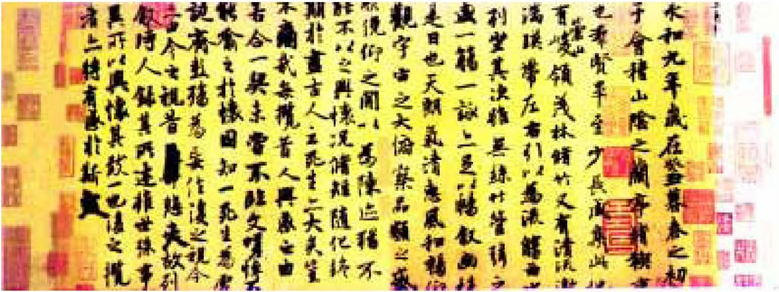 永和九年歲在癸丑暮春之初
于會稽山陰之蘭亭脩禊事
也羣賢畢至少長咸集此
有崇山峻領茂林脩竹又有清流激
湍暎帶左右引以為流觴曲水
列坐其次雖無絲竹管弦之
盛一觴一詠亦足以暢敘幽情
是日也天朗氣清惠風和暢仰
觀宇宙之大俯察品類之盛
俛仰之閒以為陳迹猶不
能不以之興懷況脩短隨化終
期於盡古人云死生亦大矣豈
不痛哉每攬昔人興感之由
若合一契未嘗不臨文嗟悼不
能喻之於懷固知一死生為虛
誕齊彭殤為妄作後之視今
亦由今之視昔悲夫故列
敘時人錄其所述雖世殊事
異所以興懷其致一也後之攬
者亦將有感於斯文